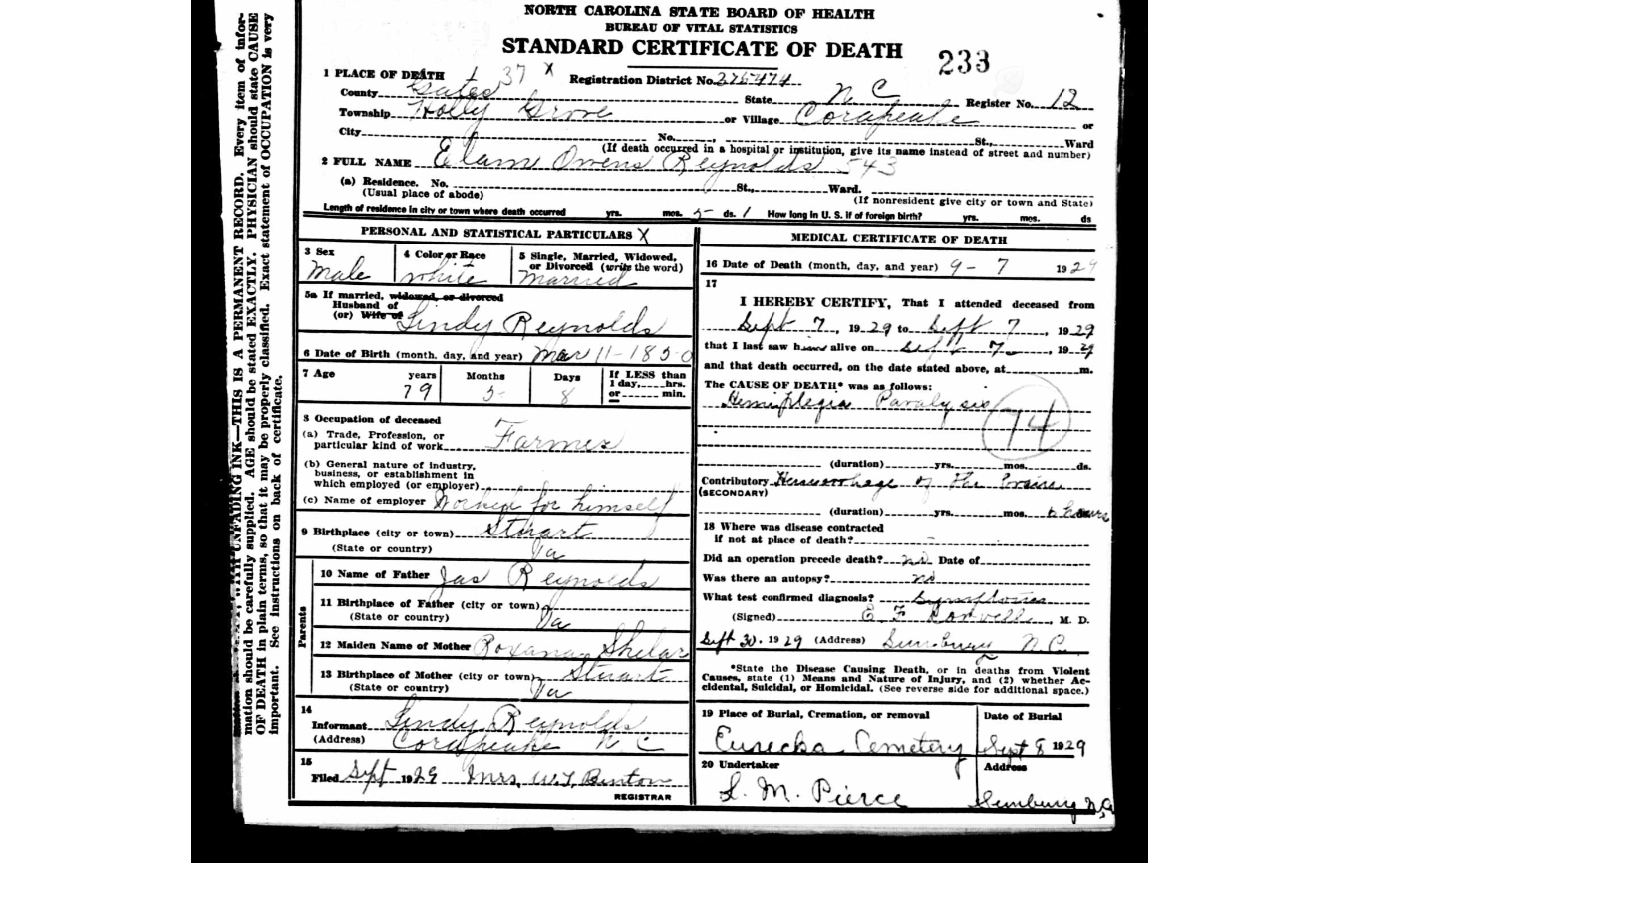 NORTH CAROLINA STATE BOARD OF HEALTH
BUREAU OF VITAL STATISTICS
STANDARD CERTIFICATE OF DEATH
233
1 PLACE OF DEATH 37 X Registration District No.
County Gates State N C Register No. 12
Township Holly Grove or Village Corapeake or
City No. , St., Ward
(If death occurred in a hospital or institution, give its name instead of street and number)
2 FULL NAME Owens Reynolds 543
(a) Residence. No. St., Ward.
(Usual place of abode) (If nonresident give city or town and State)
Length of residence in city or town where death occurred yrs. mos. 5 ds. 1 How long in U. S. if of foreign birth? yrs. mos. ds
PERSONAL AND STATISTICAL PARTICULARS X
3 Sex
Male
4 Color or Race
white
5 Single, Married, Widowed,
or Divorced (write the word)
Married
5a If married, widowed, or divorced
Husband of
(or) Wife of Lindy Reynolds
6 Date of Birth (month, day, and year) Mar 11-1850
7 Age years Months Days If LESS than
1 day, hrs.
or min.
79 5 8
8 Occupation of deceased
(a) Trade, Profession, or
particular kind of work Farmer
(b) General nature of industry,
business, or establishment in
which employed (or employer)
(c) Name of employer for himself
9 Birthplace (city or town) Stuart
(State or country) Va
Parents
10 Name of Father Jas Reynolds
11 Birthplace of Father (city or town)
(State or country) Va
12 Maiden Name of Mother Roxana Shelar
13 Birthplace of Mother (city or town) Stuart
(State or country) Va
14
Informant Lindy Reynolds
(Address) Corapeake N C
15
Filed Sept 1929 Mrs. W.T. Benton
REGISTRAR
MEDICAL CERTIFICATE OF DEATH
16 Date of Death (month, day, and year) 9-7 1929
17
I HEREBY CERTIFY, That I attended deceased from
Sept 7, 1929 to Sept 7, 1929
that I last saw him alive on Sept 7, 1929
and that death occurred, on the date stated above, at m.
The CAUSE OF DEATH* was as follows:
Hemiplegia Paralysis
74
(duration) yrs. mos. ds.
Contributory Hemorrhage of the brain
(SECONDARY)
(duration) yrs. mos. hours
18 Where was disease contracted
if not at place of death?
Did an operation precede death? no Date of
Was there an autopsy? no
What test confirmed diagnosis? Symptoms
(Signed) E F , M. D.
Sept 30, 1929 (Address) Sunbury N.C.
*State the Disease Causing Death, or in deaths from Violent
Causes, state (1) Means and Nature of Injury, and (2) whether Ac-
cidental, Suicidal, or Homicidal. (See reverse side for additional space.)
19 Place of Burial, Cremation, or removal Date of Burial
Eureka Cemetery Sept 8 1929
20 Undertaker Address
L. M. Pierce Sunbury N.C.
UNFADING INK—THIS IS A PERMANENT RECORD. Every item of infor-
mation should be carefully supplied. AGE should be stated EXACTLY. PHYSICIAN should state CAUSE
OF DEATH in plain terms, so that it may be properly classified. Exact statement of OCCUPATION is very
important. See instructions on back of certificate.